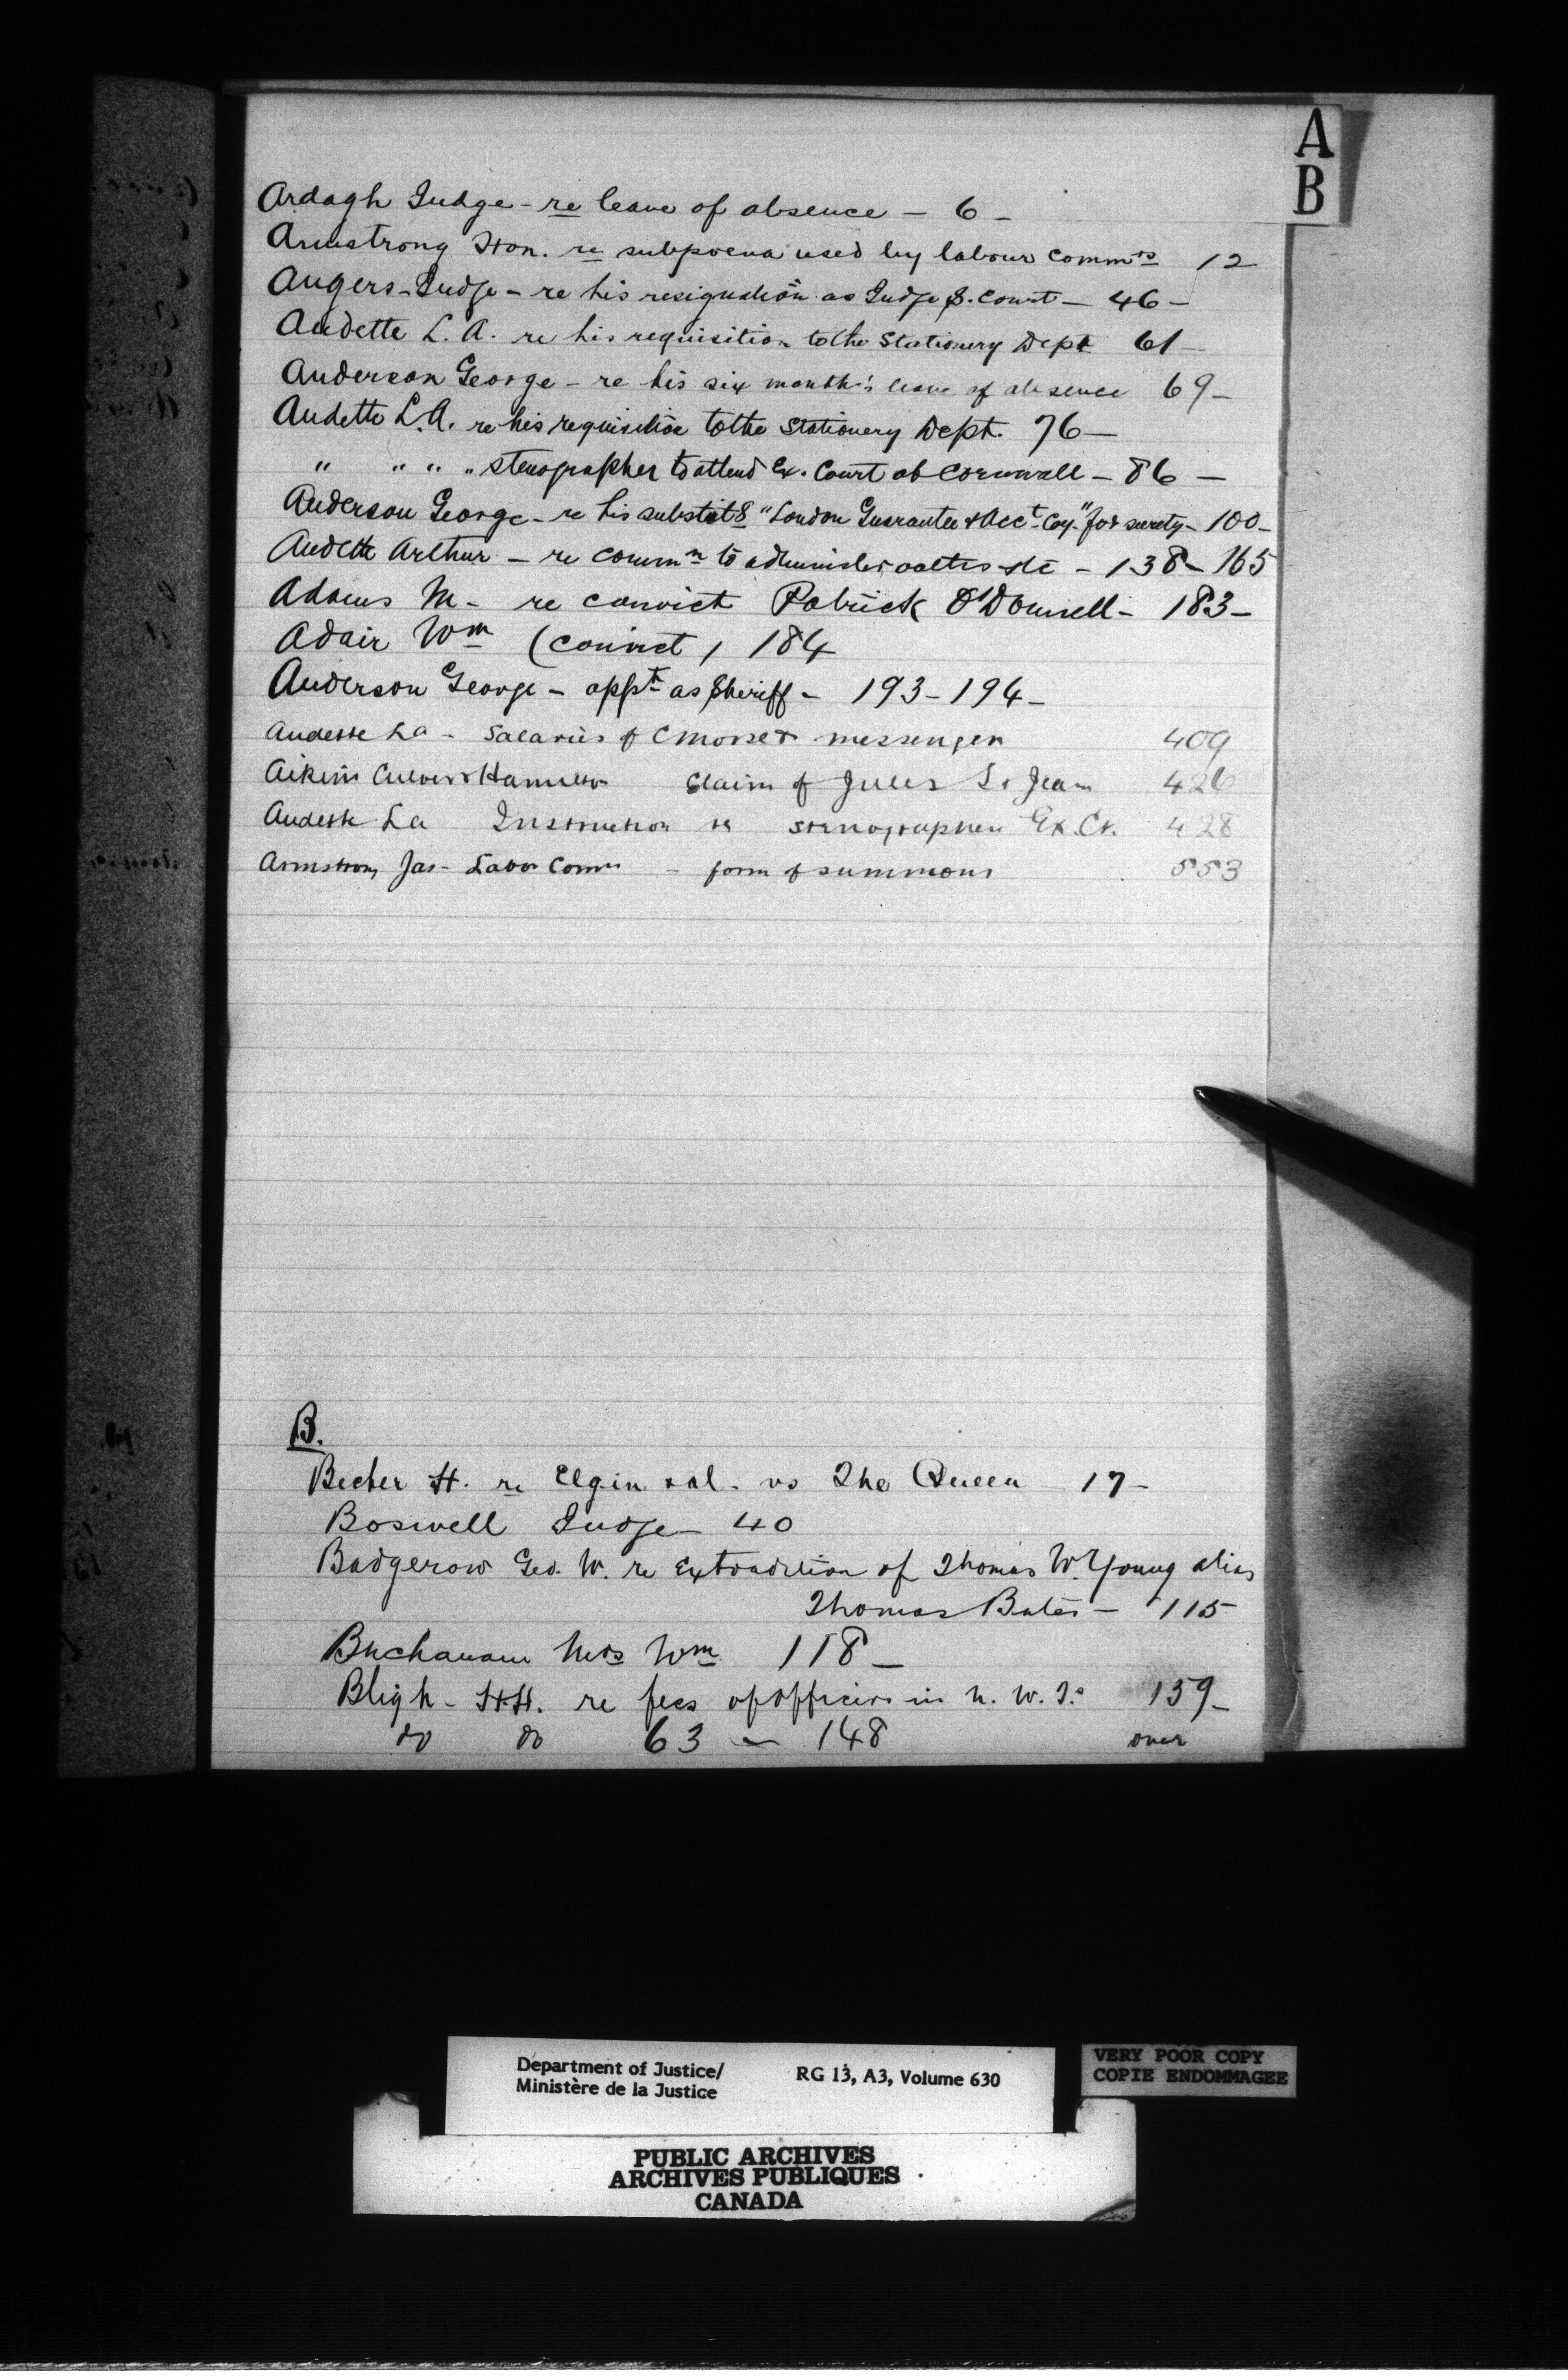 A
B
Ardagh Judge - re leave of absence - 6 -
Armstrong Hon. re subpoena used by labour Commrs 12
Angers - Judge - re his resignation as Judge S. Court - 46 -
Audette L. A. re his requisition to the Stationery Dept 61 -
Anderson George - re his six month's leave of absence 69 -
Audette L. A. re his requisition to the Stationery Dept. 76 -
" " " " stenographer to attend Ex. Court at Cornwall - 86 -
Anderson George - re his substitg "London Guarantee & Acct Coy." for surety - 100 -
Audette Arthur - re commn to administer oaths etc - 138 - 165
Adams M - re convict Patrick O'Donnell - 183 -
Adair Wm (convict) 184
Anderson George - appt as Sheriff - 193 - 194 -
Audette La - Salaries of C Morse & messenger 409
Aikins Culver & Hamilton Claim of Jules St Jean 426
Audette La Instruction re stenographer Ex. Ct. 428
Armstrong Jas - Labor Comn - form of summons 553
B.
Becher H. re Elgin & al. vs The Queen 17 -
Boswell Judge - 40
Badgerow Geo. W. re Extradition of Thomas W. Young alias
Thomas Bates - 115
Buchanan Mrs Wm 118 -
Bligh - H.H. re fees of officers in N. W. T. 139 -
do do 63 - 148 over
Department of Justice/ RG 13, A3, Volume 630
Ministère de la Justice
VERY POOR COPY
COPIE ENDOMMAGEE
PUBLIC ARCHIVES
ARCHIVES PUBLIQUES
CANADA